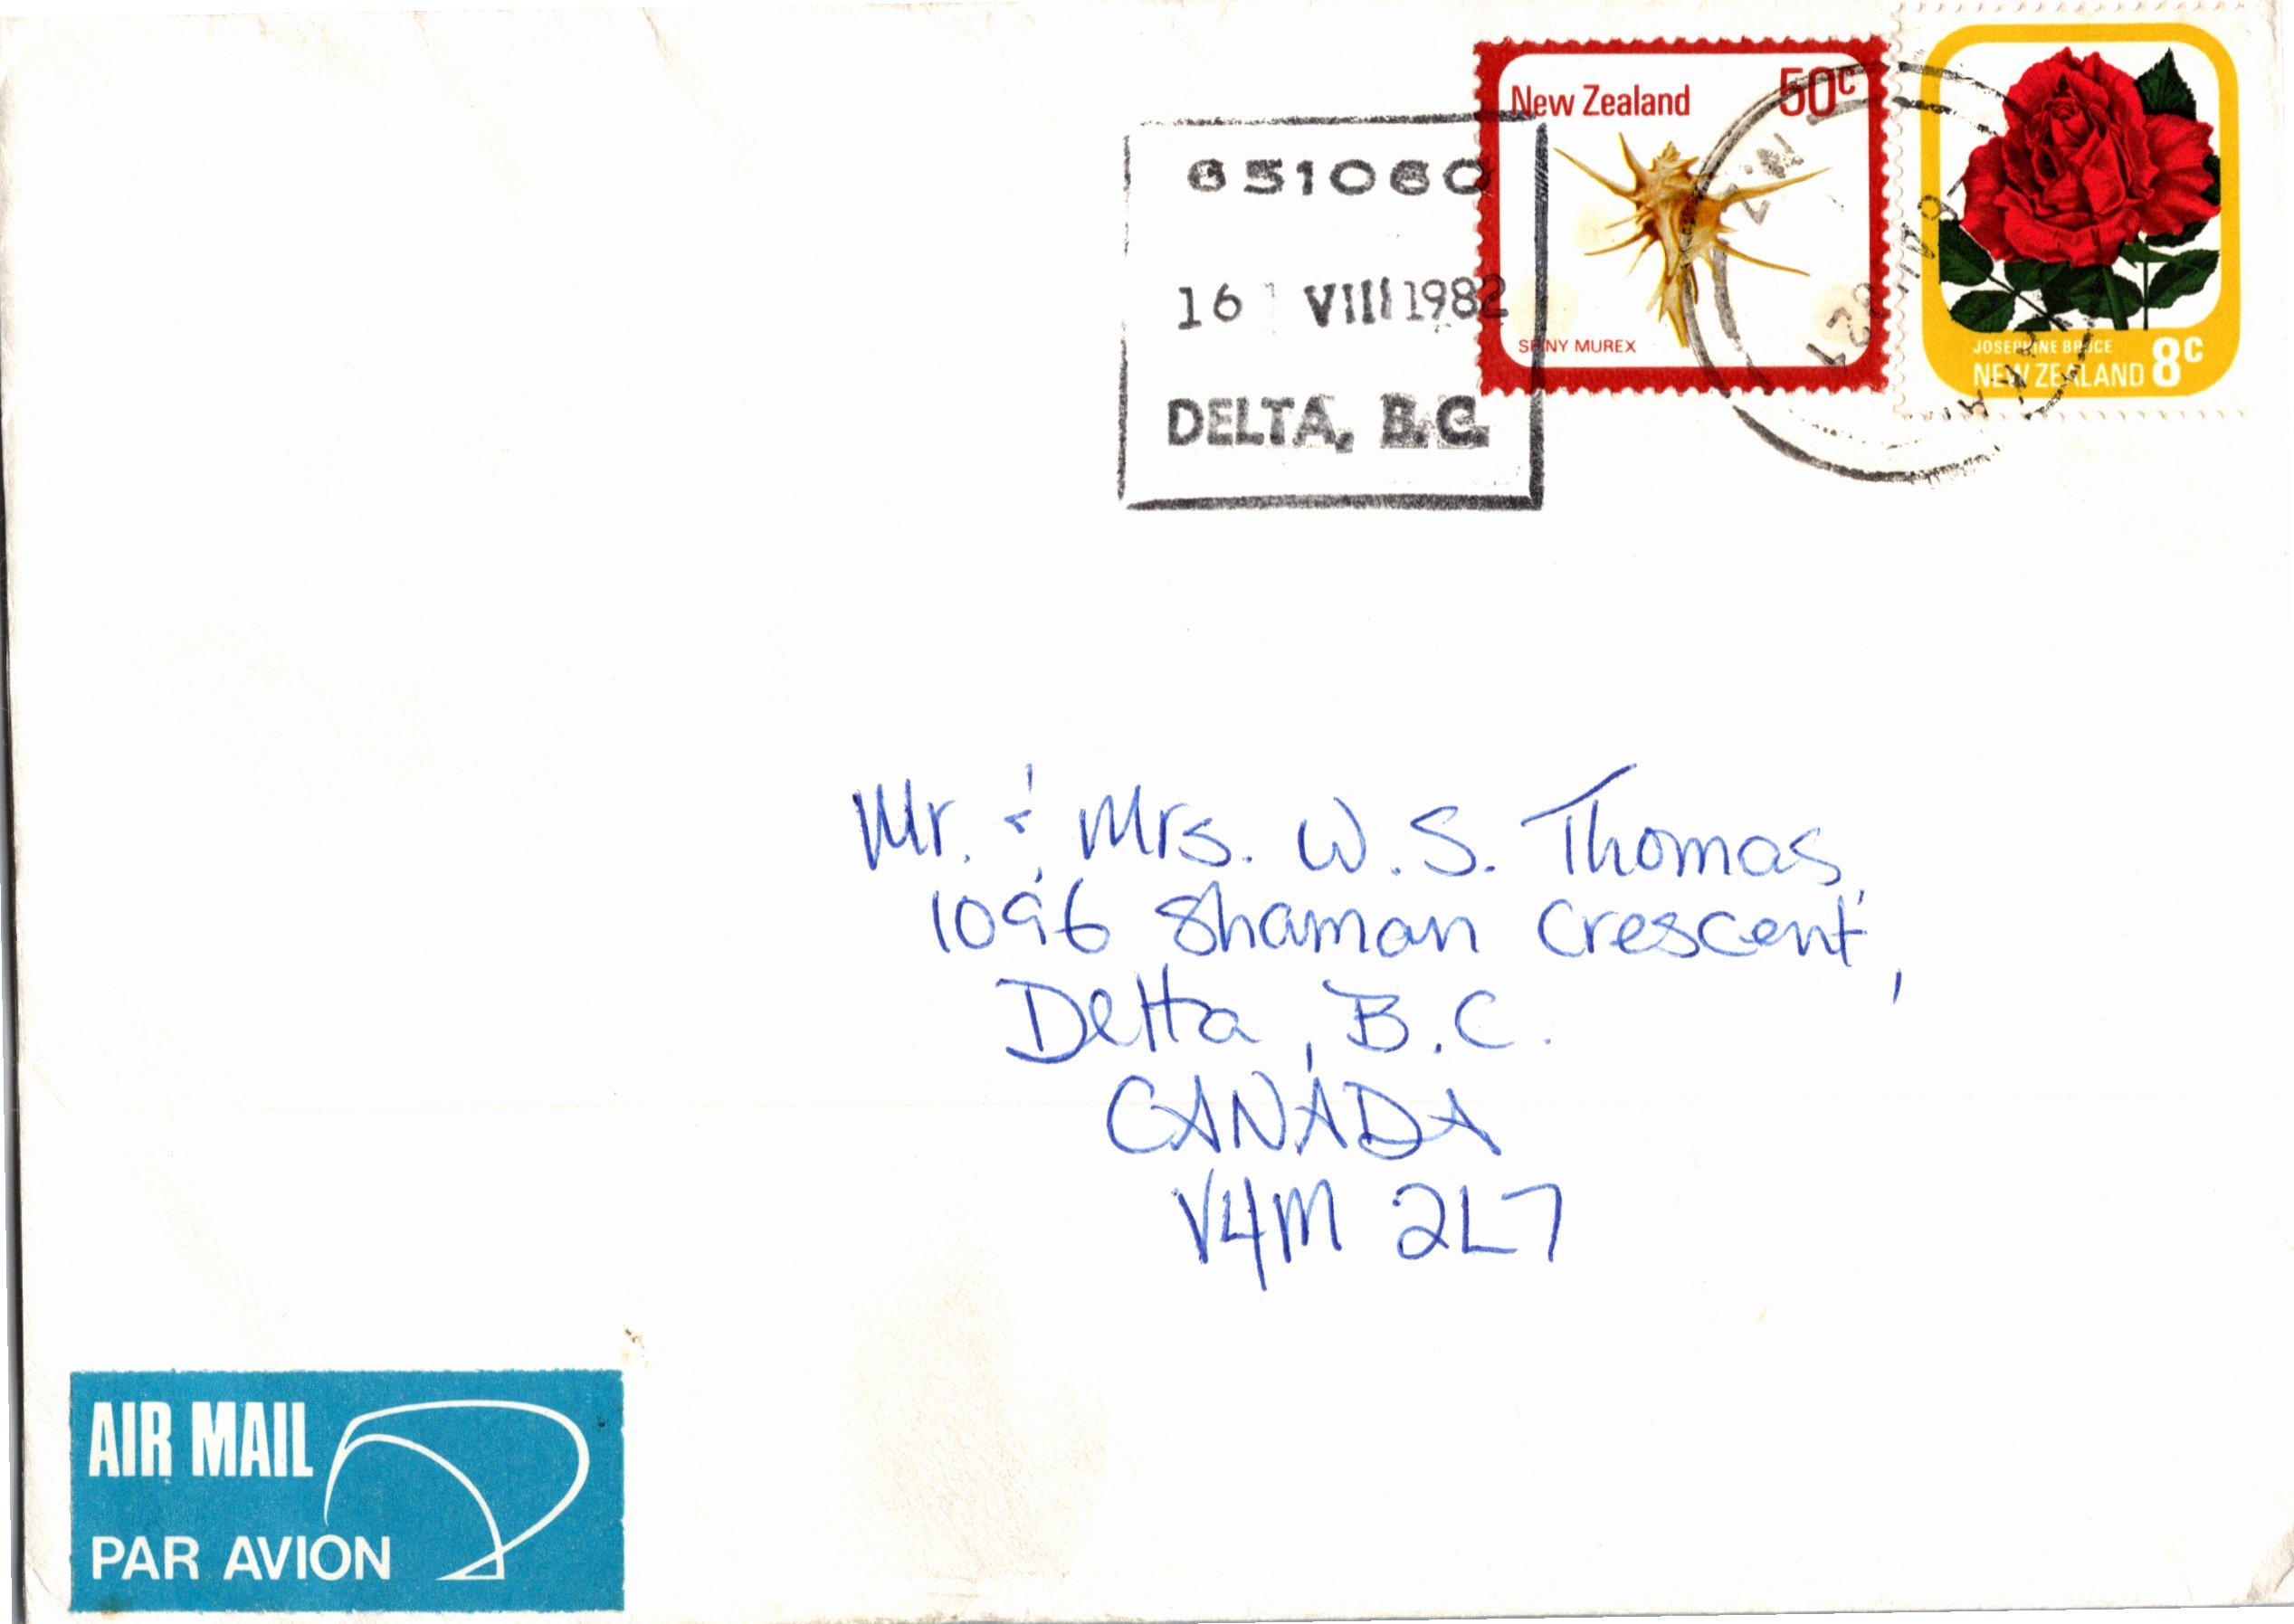 New Zealand 50c
SPINY MUREX
JOSEPHINE BRUCE
NEW ZEALAND 8c
651060
16 VIII 1982
DELTA, B.C.
N.Z.
Mr. & Mrs. W.S. Thomas,
1096 Shaman Crescent,
Delta, B.C.
CANADA
V4M 2L7
AIR MAIL
PAR AVION